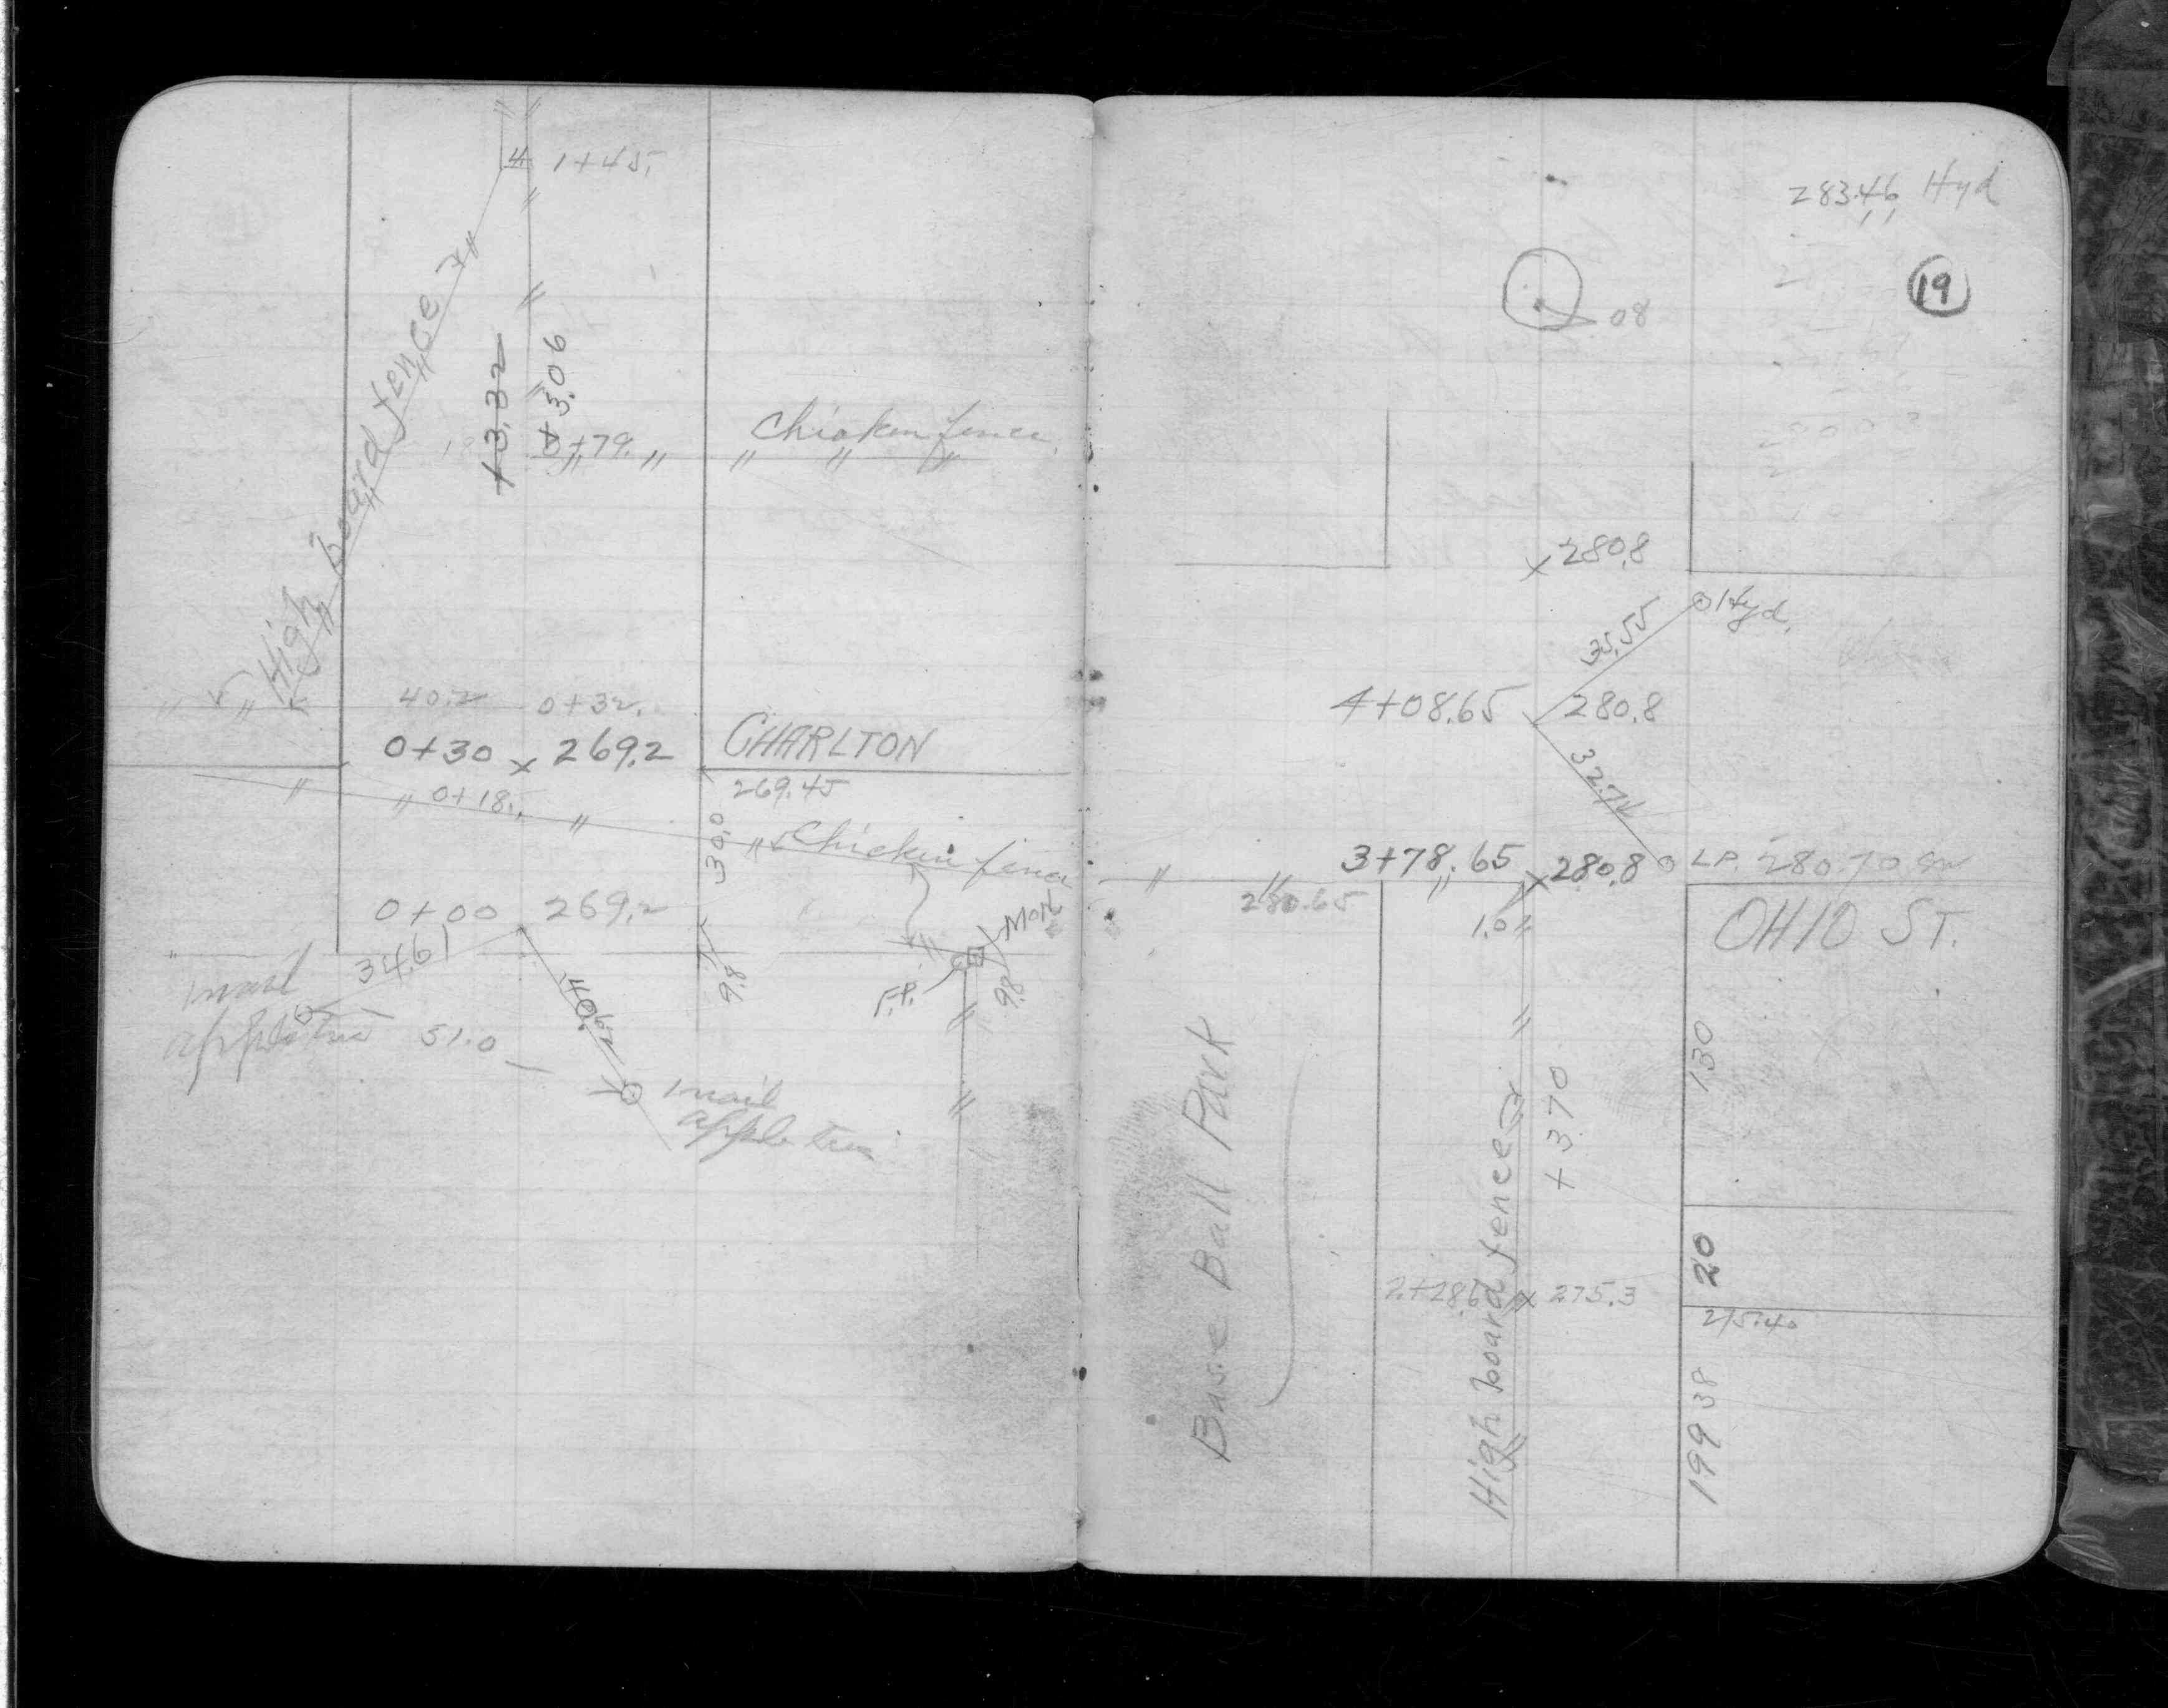 4. 1+45.
High board fence
+3.32
+3.06
0+79.
Chicken fence
40.2 0+32.
0+30 x 269.2
CHARLTON
269.45
0+18.
30.0
Chicken fence
0+00 269.2
34.61
MON
9.8
F.P.
9.8
1 nail
apple tree
51.0
1 nail
apple tree
283.46 Hyd
19
08
x 280.8
Hyd.
35.55
4+08.65 280.8
32.74
3+78.65 x 280.8
L.P. 280.70
280.65
1.0
OHIO ST.
Base Ball Park
High board fence
+3.70
130
20
275.3
275.40
199 38